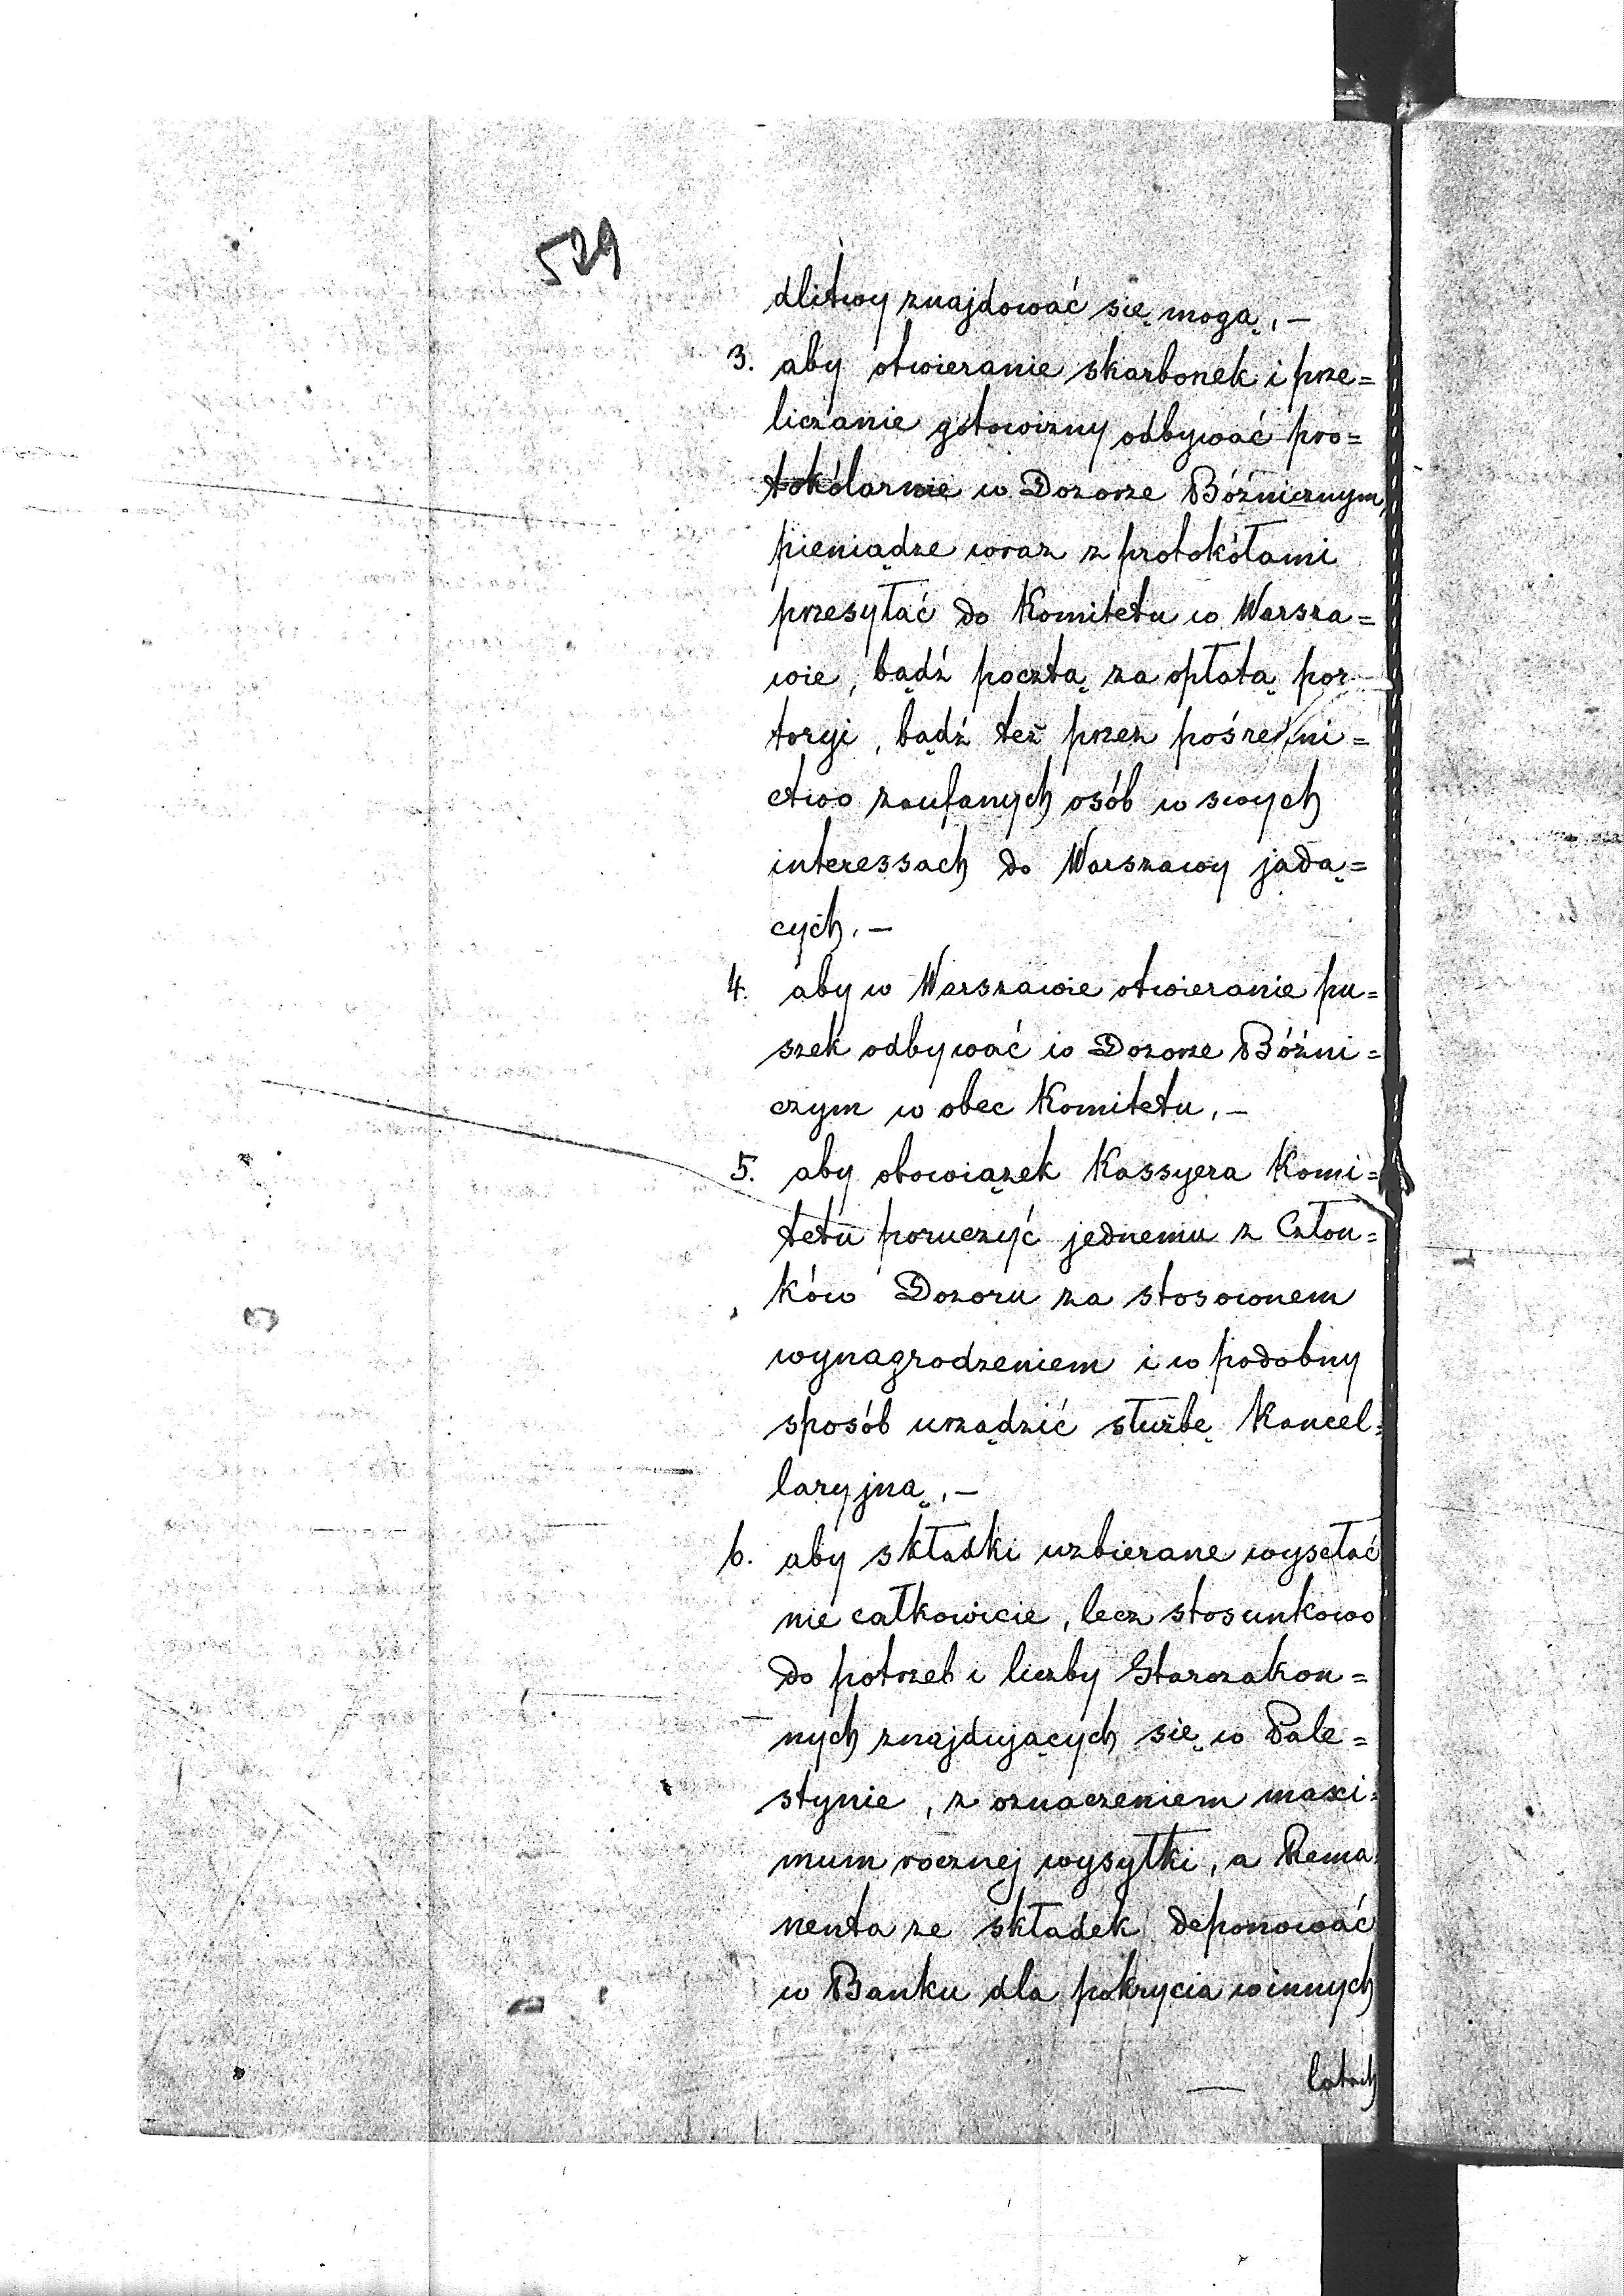 529
dlitwy znajdować się mogą, —
3. aby otwieranie skarbonek i prze=
liczanie gotowizny odbywać pro=
tokólarnie w Dozorze Bóźnicznym,
pieniądze wraz z protokółami
przesyłać do Komitetu w Warsza=
wie, bądź pocztą za opłatą por-
toryi, bądź też przez pośredni=
ctwo zaufanych osób w swych
interessach do Warszawy jadą=
cych. —
4. aby w Warszawie otwieranie pu=
szek odbywać w Dozorze Bóźni=
czym w obec Komitetu, —
5. aby obowiązek Kassyera Komi=
tetu poruczyć jednemu z Człon=
ków Dozoru za stosownem
wynagrodzeniem i w podobny
sposób urządzić służbę Kancel=
laryjną, —
6. aby składki uzbierane wysełać
nie całkowicie, lecz stosunkowo
do potrzeb i liczby Starozakon=
nych znajdujących się w Pale=
stynie, z oznaczeniem maxi=
mum rocznej wysyłki, a Rema=
nenta ze składek deponować
w Banku dla pokrycia w innych
— latach